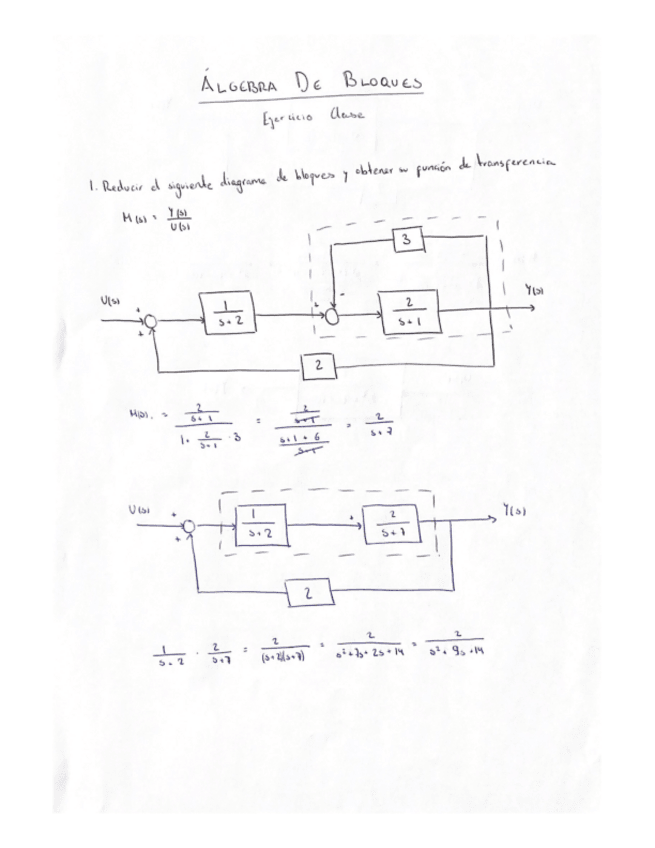 ÁLGEBRA DE BLOQUES
Ejercicio Clase
1. Reducir el siguiente diagrama de bloques y obtener su función de transferencia
M(s) = Y(s)/U(s)
3
U(s) + + 1/(s+2) + - 2/(s+1) Y(s)
2
M(s). = (2/(s+1))/(1+ 2/(s+1) · 3) = (2/(s+1))/((s+1+6)/(s+1)) = 2/(s+7)
U(s) + + 1/(s+2) + 2/(s+7) Y(s)
2
1/(s+2) · 2/(s+7) = 2/((s+2)(s+7)) = 2/(s²+7s+2s+14) = 2/(s²+9s+14)